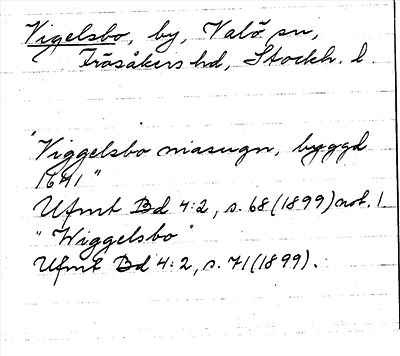 Vigelsbo, by, Valö sn,
Frösåkers hd, Stockh. l.
"Viggelsbo masugn, byggd
1641"
Ufmt Bd 4:2, s. 68 (1899) not. 1
"Wiggelsbo"
Ufmt Bd 4:2, s. 71 (1899).